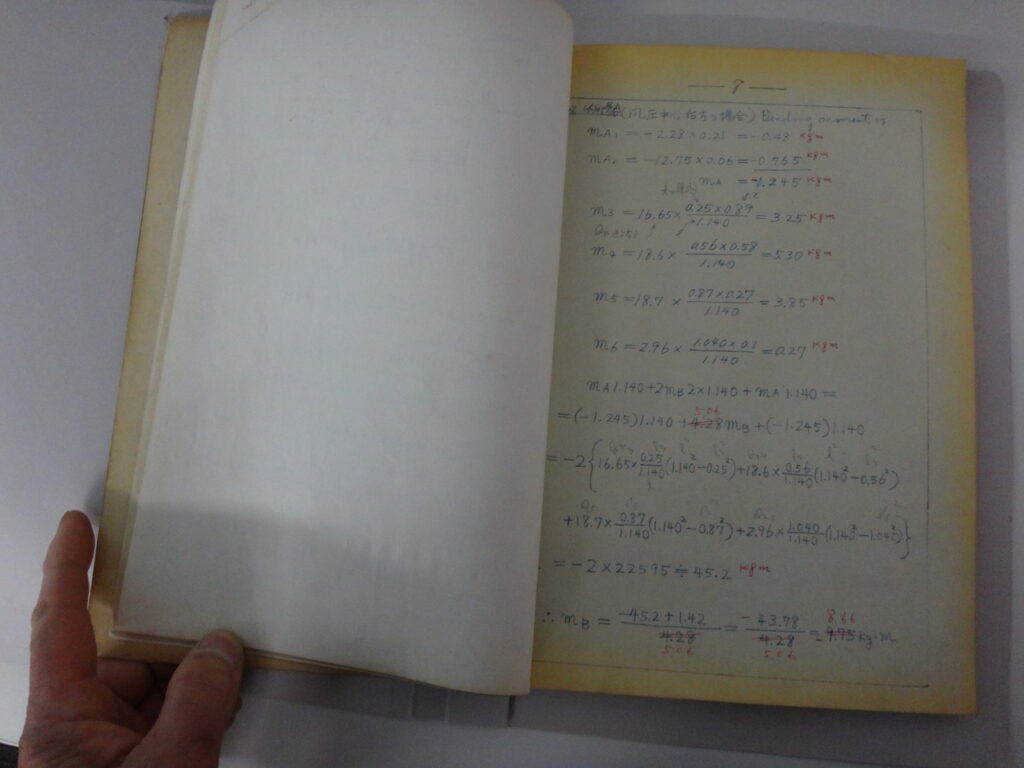 — 8 —
(M圧中心后方ノ場合) Bending moment ハ
MA1 = -2.28×0.21 = -0.48 kgm
MA2 = -12.75×0.06 = -0.765 kgm
MA = -1.245 kgm
M3 = 16.65× 0.25×0.89 / 1.140 = 3.25 kgm
M4 = 18.6× 0.56×0.58 / 1.140 = 5.30 kgm
M5 = 18.7 × 0.87×0.27 / 1.140 = 3.85 kgm
M6 = 2.96× 1.040×0.1 / 1.140 = 0.27 kgm
MA1.140+2MB2×1.140+MA'1.140 =
= (-1.245)1.140 + 4.28 5.06 MB + (-1.245)1.140
= -2{16.65× 0.25/1.140 (1.140-0.25²)+18.6× 0.56/1.140 (1.140²-0.56²)
+18.7× 0.87/1.140 (1.140²-0.87²)+2.96× 1.040/1.140 (1.140²-1.040²)}
= -2×22595≒45.2 kgm
∴ MB = -45.2+1.42 / 4.28 5.06 = -43.78 / 4.28 5.06 = 8.66 kg·m